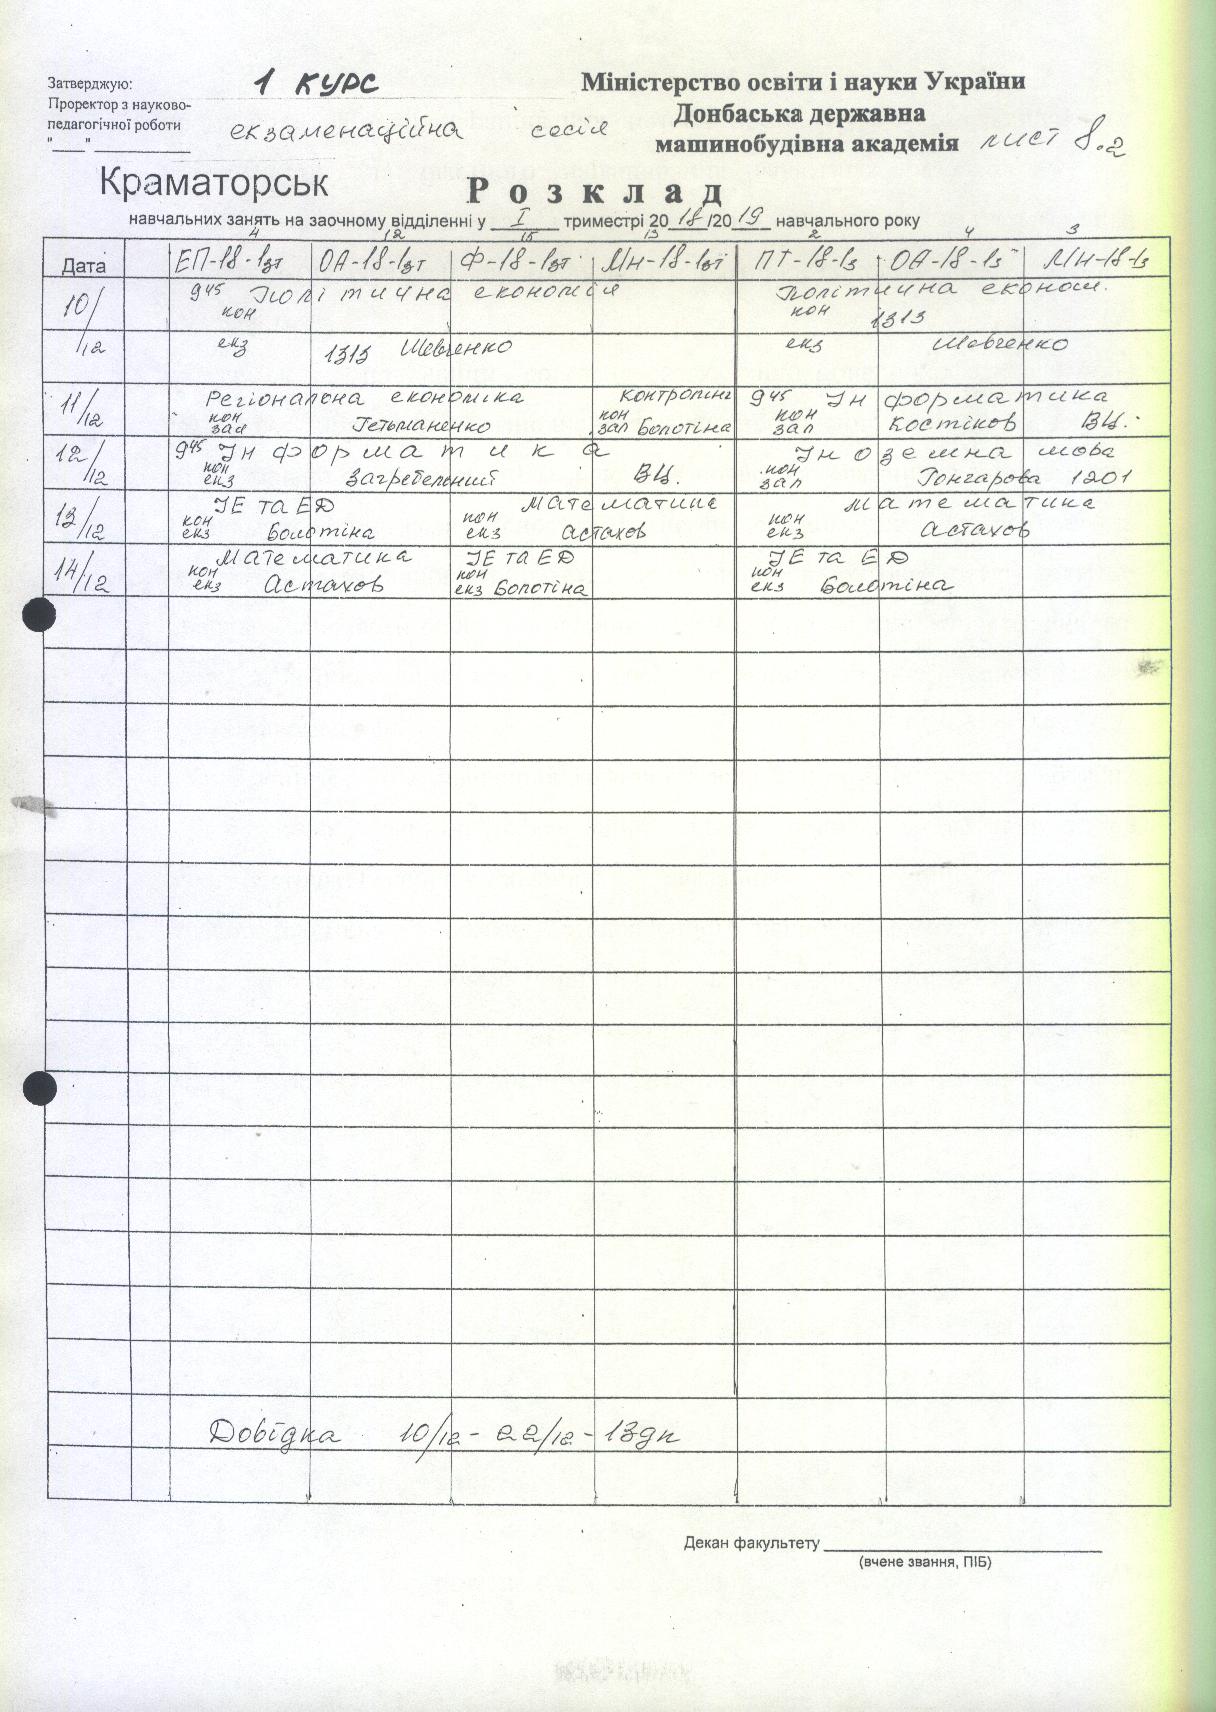 Затверджую:
1 КУРС
Міністерство освіти і науки України
Проректор з науково-
Донбаська державна
педагогічної роботи
екзаменаційна сесія
машинобудівна академія лист 8.2
"____" ____________
Краматорськ
Розклад
навчальних занять на заочному відділенні у I триместрі 2018/2019 навчального року
4 12 15 13 2 4 3
Дата ЕП-18-1зт ОА-18-1зт Ф-18-1зт МН-18-1зт ПТ-18-1з ОА-18-1з МН-18-1з
10/12 9 45 Політична економія Політична економ.
кон кон 1313
екз 1313 Шевченко екз Шевченко
11/12 Регіональна економіка Контролінг 9 45 Інформатика
кон зал Гетьманенко кон зал Болотіна кон зал Костіков ВЦ.
12/12 9 45 Інформатика Іноземна мова
кон екз Загребельний ВЦ. кон зал Гончарова 1201
13/12 ІЕ та ЕД Математика Математика
кон екз Болотіна кон екз Астахов кон екз Астахов
14/12 Математика ІЕ та ЕД ІЕ та ЕД
кон екз Астахов кон екз Болотіна кон екз Болотіна
Довідка 10/12 - 22/12 - 13дн
Декан факультету
(вчене звання, ПІБ)